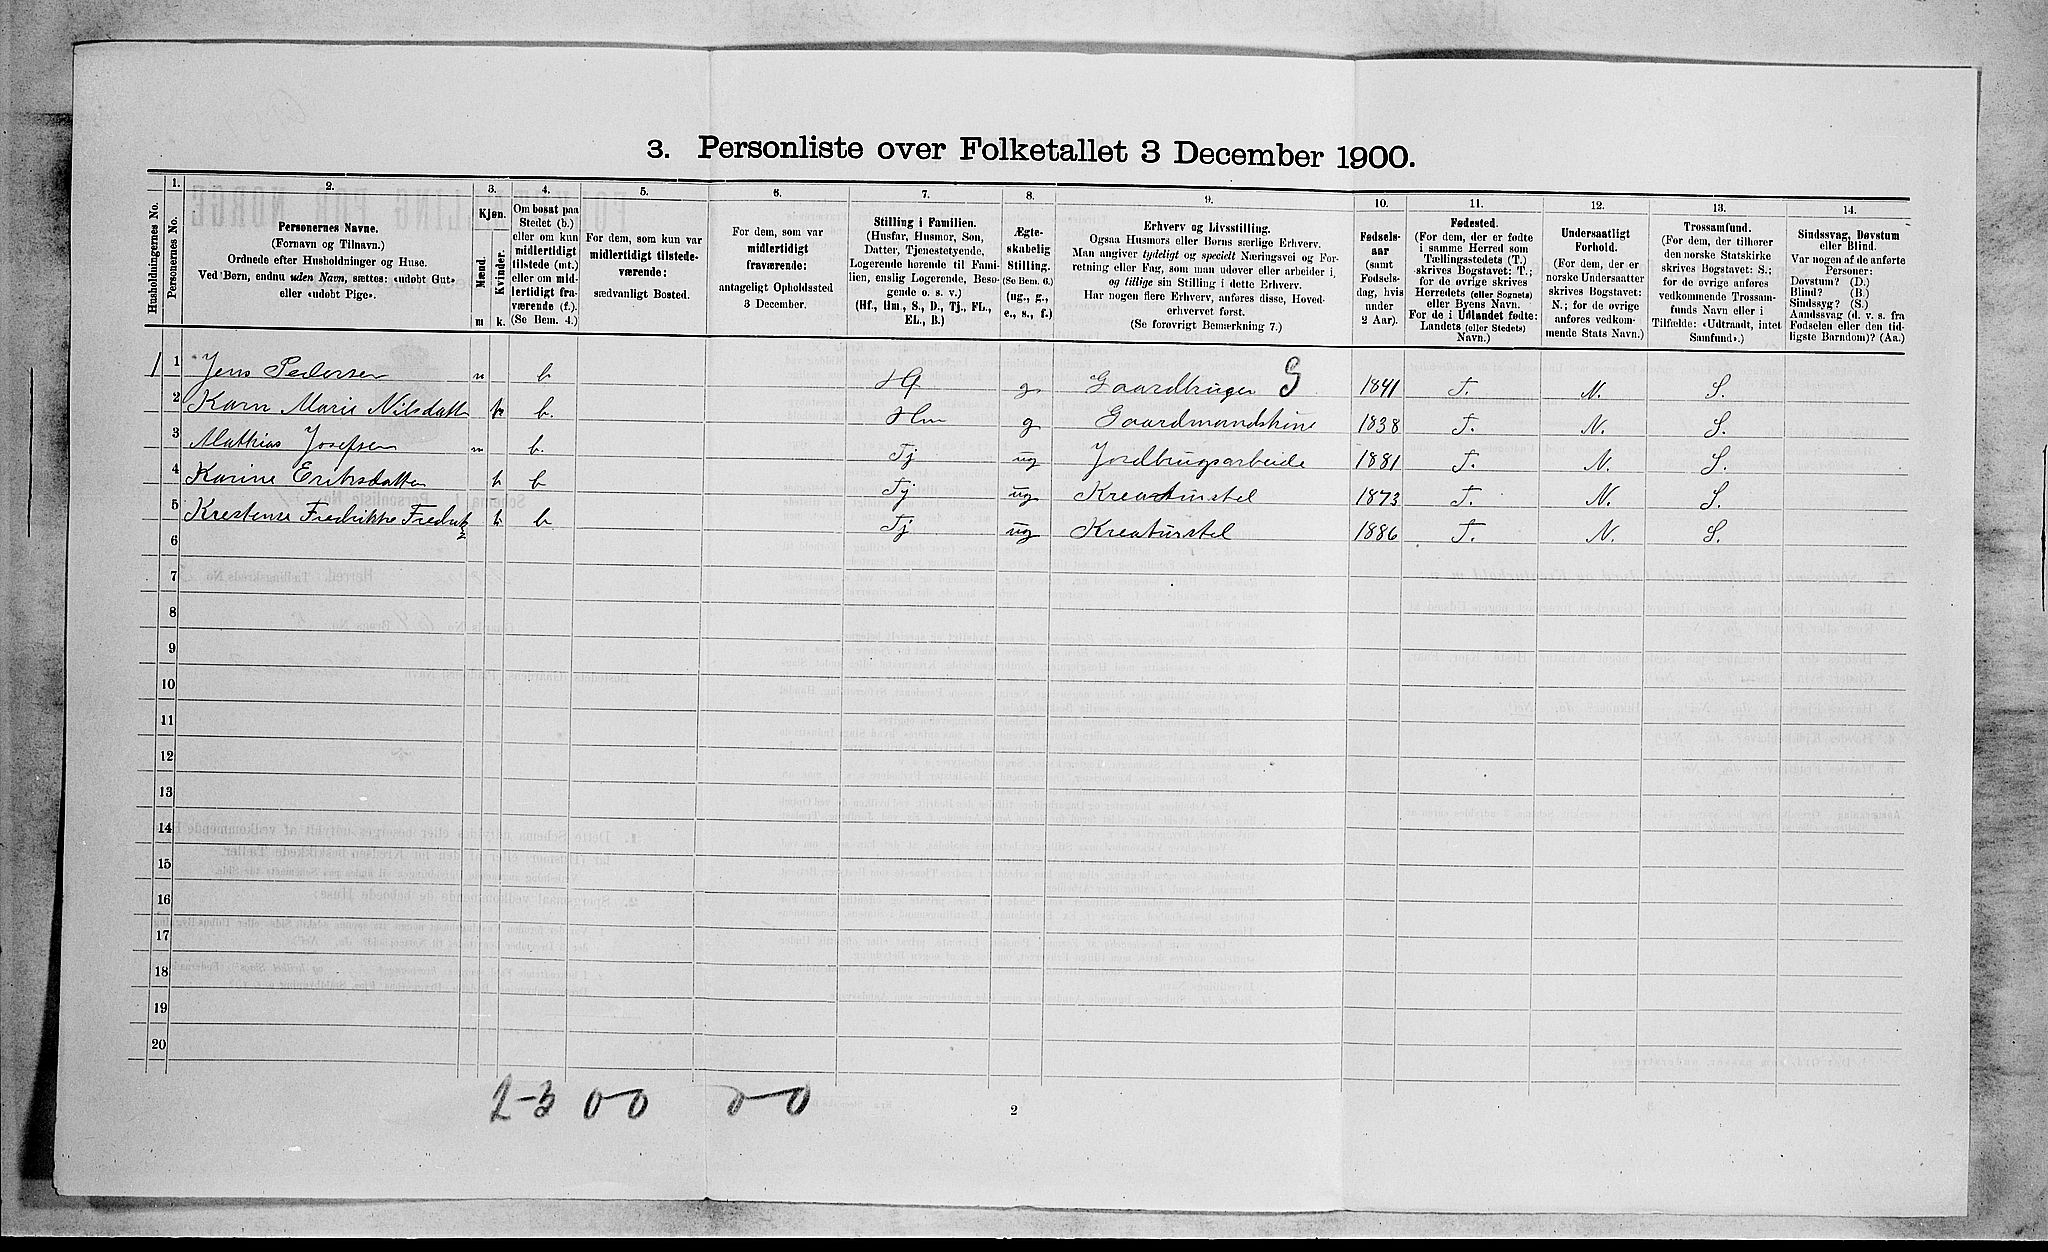 3. Personliste over Folketallet 3 December 1900.
1. 2. 3. 4. 5. 6. 7. 8. 9. 10. 11. 12. 13. 14.
Husholdningernes No.
Personernes No.
Personernes Navne.
(Fornavn og Tilnavn.)
Ordnede efter Husholdninger og Huse.
Ved Børn, endnu uden Navn, sættes: «udøbt Gut»
eller «udøbt Pige».
Kjøn.
Mænd.
Kvinder.
m k.
Om bosat paa
Stedet (b.)
eller om kun
midlertidigt
tilstede (mt.)
eller om mid-
lertidigt fra-
værende (f.).
(Se Bem. 4.)
For dem, som kun var
midlertidigt tilstede-
værende:
sædvanligt Bosted.
For dem, som var
midlertidigt
fraværende:
antageligt Opholdssted
3 December.
Stilling i Familien.
(Husfar, Husmor, Søn,
Datter, Tjenestetyende,
Logerende hørende til Fami-
lien, enslig Logerende, Besø-
gende o. s. v.)
(Hf., Hm., S., D., Tj., FL.,
EL., B.)
Ægte-
skabelig
Stilling.
(Se Bem. 6.)
(ug., g.,
e., s., f.)
Erhverv og Livsstilling.
Ogsaa Husmors eller Børns særlige Erhverv.
Man angiver tydeligt og specielt Næringsvei og For-
retning eller Fag, som man udøver eller arbeider i,
og tillige sin Stilling i dette Erhverv.
Har nogen flere Erhverv, anføres disse, Hoved-
erhvervet først.
(Se forøvrigt Bemærkning 7.)
Fødsels-
aar
(samt
Fødsels-
dag, hvis
under
2 Aar).
Fødested.
(For dem, der er fødte
i samme Herred som
Tællingsstedets (T.)
skrives Bogstavet: T.;
for de øvrige skrives
Herredets (eller Sognets)
eller Byens Navn.
For de i Udlandet fødte:
Landets (eller Stedets)
Navn.)
Undersaatligt
Forhold.
(For dem, der er
norske Undersaatter
skrives Bogstavet:
N.; for de øvrige
anføres vedkom-
mende Stats Navn.)
Trossamfund.
(For dem, der tilhører
den norske Statskirke
skrives Bogstavet: S.;
for de øvrige anføres
vedkommende Trossam-
funds Navn eller i
Tilfælde: «Udtraadt, intet
Samfund».)
Sindssvag, Døvstum
eller Blind.
Var nogen af de anførte
Personer:
Døvstum? (D.)
Blind? (B.)
Sindssyg? (S.)
Aandssvag (d. v. s. fra
Fødselen eller den tid-
ligste Barndom)? (Aa.)
1 1 Jens Pedersen m b Hf g Gaardbruger G 1841 T. N. S.
2 Karn Marie Nilsdatter k b. Hm g Gaardmandskone 1838 T. N. S.
3 Mathias Josefsen m b. Tj ug Jordbrugsarbeide 1881 T. N. S.
4 Karine Eriksdatter k b Tj ug Kreaturstel 1873 T. N. S.
5 Krestense Fredrikke Fredrik k b Tj ug Kreaturstel 1886 T. N. S.
6
7
8
9
10
11
12
13
14
15
16
17
18
19
20
2-3 0-0 0-0
2